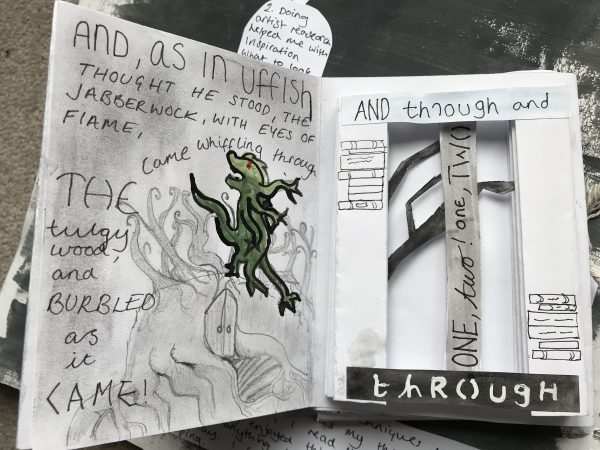 2. Doing
artist research
helped me with
inspiration
what to look
AND, AS IN UffISH
THOUGHT HE STOOD, THE
JABBERWOCK, WITH EYES OF
FlAME,
Came whiffling through
THE
tulgy
wood,
and
BURBLED
as
it
CAME!
AND through and
ONE, two! one, TWO
thROUgH